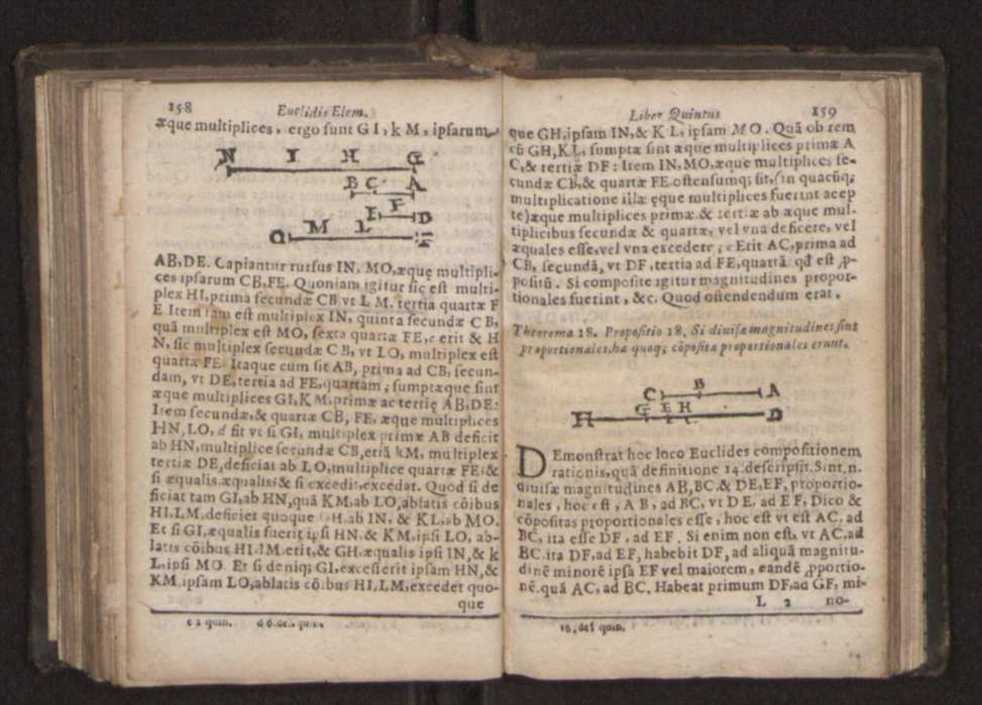 158 Euclidis Elem.
æque multiplices, ergo sunt G I, k M, ipsarum
N I H G
B C A
F
E D
O M L
AB, DE. Capiantur rursus IN, MO, æque multipli-
ces ipsarum CB, FE. Quoniam igitur sic est multi-
plex HI, prima secundæ CB vt L M, tertia quartæ F
E Item tam est multiplex IN, quinta secundæ C B,
quã multiplex est MO, sexta quartæ FE, c erit & H
N, sic multiplex secundæ C B, vt LO, multiplex est
quartæ FE. Itaque cum sit AB, prima ad CB, secun-
dam, vt DE, tertia ad FE, quartam; sumptæque sint
æque multiplices GI, K M, primæ ac tertię AB, DE:
Item secundæ, & quartæ CB, FE, æque multiplices
HN, LO, d fit vt si GI, multiplex primæ AB deficit
ab HN, multiplice secundæ CB, etiã kM, multiplex
tertiæ DE, deficiat ab LO, multiplice quartæ FE; &
si æqualis, æqualis; & si excedit, excedat. Quod si de
ficiat tam GI, ab HN, quã KM, ab LO, ablatis cõibus
HI, LM, deficiet quoque GH, ab IN, & KL, ab MO.
Et si GI, æqualis fuerit ipsi HN, & KM, ipsi LO, ab-
latis cõibus HI, LM, erit, & GH, æqualis ipsi IN, & k
L, ipsi MO. Et si deniq; GI, excesserit ipsam HN, &
KM, ipsam LO, ablatis cõibus HI, LM, excedet quo-
que
c 2 quin. d 6. def. quin.
Liber Quintus 159
que GH, ipsam IN, & K L, ipsam MO. Quã ob rem
cũ GH, KL, sumptæ sint æque multiplices primæ A
C, & tertiæ DF: Item IN, MO, æque multiplices se-
cundæ CB, & quartæ FE ostensumq; sit, (in quacũq;
multiplicatione illæ ęque multiplices fuerint acep
te) æque multiplices primæ, & tertiæ ab æque mul-
tiplicibus secundæ & quartæ, vel vna deficere, vel
æquales esse, vel vna excedere; e Erit AC, prima ad
CB, secundã, vt DF, tertia ad FE, quartã qđ est ꝓ-
positũ. Si composite igitur magnitudines propor-
tionales fuerint, &c. Quod ostendendum erat.
Theorema 18. Propositio 18. Si diuisæ magnitudines sint
proportionales, hæ quoq; cõposita proportionales erunt.
C B A
G E H
H D
DEmonstrat hoc loco Euclides compositionem
rationis, quã definitione 14 descripsit. Sint, n.
diuisæ magnitudines AB, BC, & DE, EF, proportio-
nales, hoc est, A B, ad BC, vt D E. ad E F, Dico &
cõpositas proportionales esse, hoc est vt est AC, ad
BC, ita esse DF, ad EF. Si enim non est, vt AC, ad
BC, ita DF, ad EF, habebit DF, ad aliquã magnitu-
dinẽ minorẽ ipsa EF vel maiorem, eandẽ ꝓportio-
nẽ, quã AC, ad BC. Habeat primum DF, ad GF, mi-
L 2 no-
16. def quin.